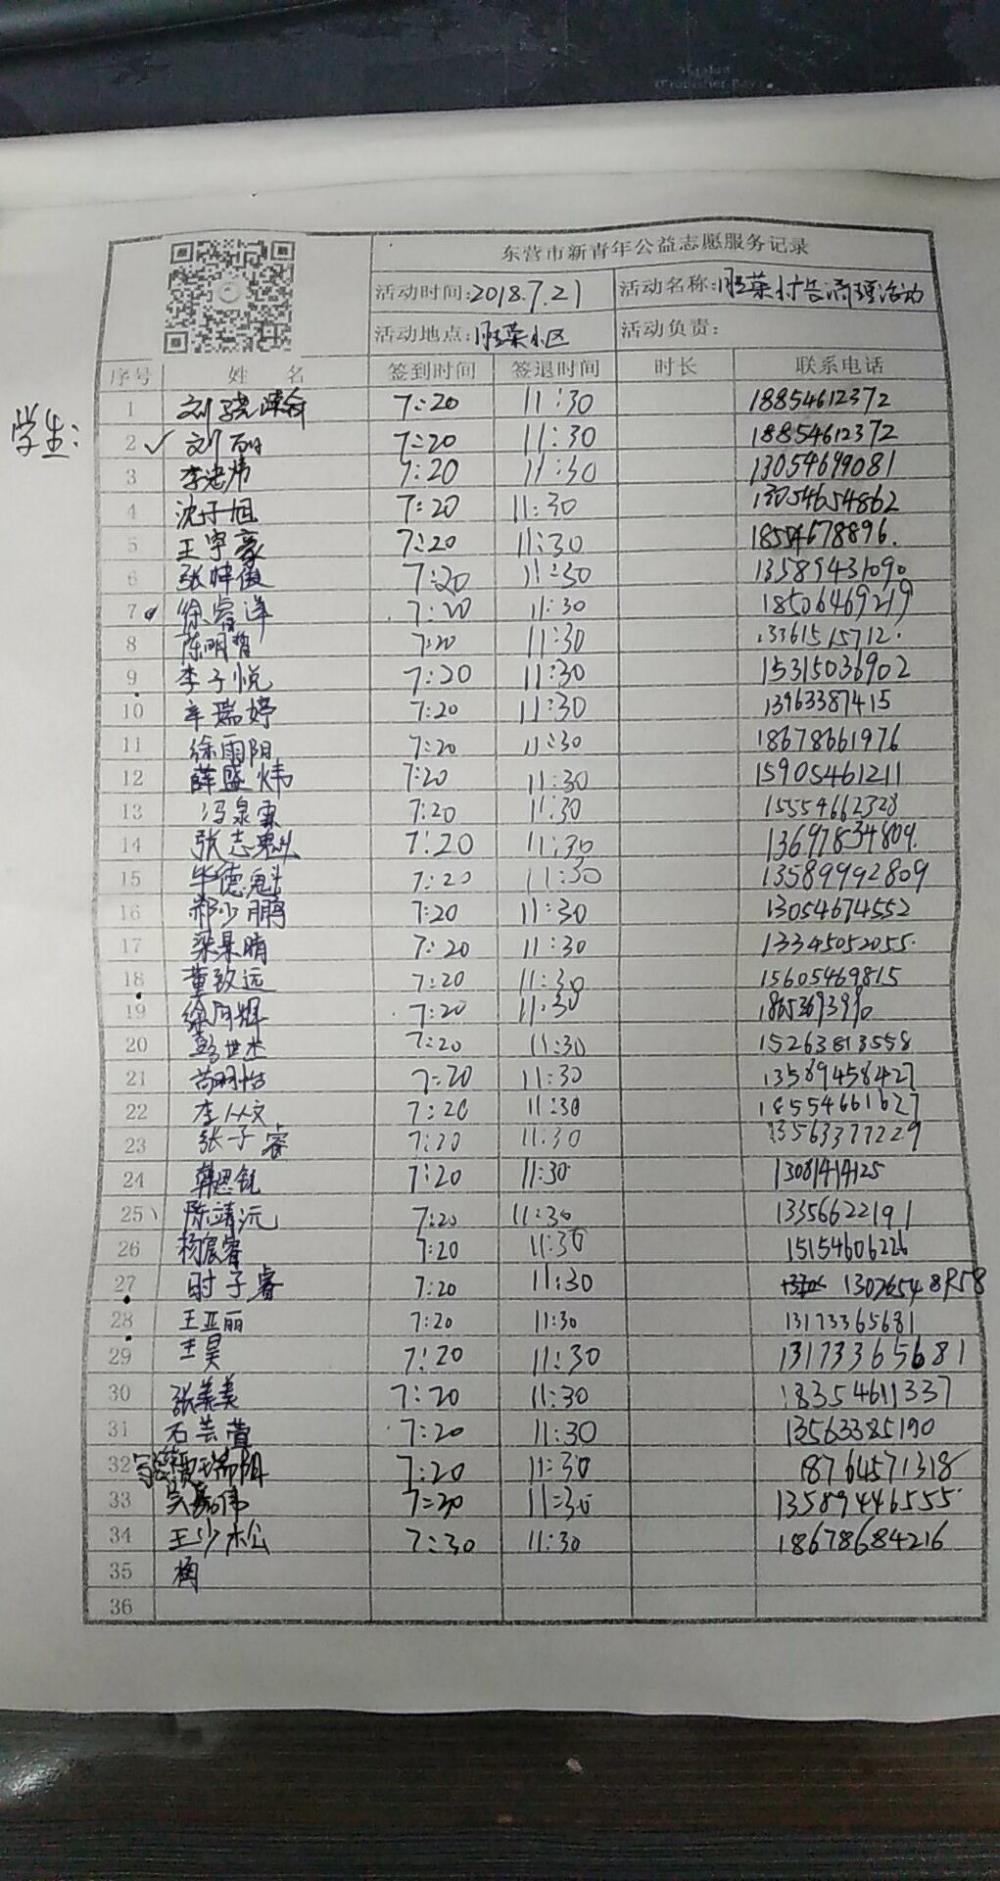 东营市新青年公益志愿服务记录
活动时间:2018.7.21 活动名称:胜莱 清理活动
活动地点:胜莱小区 活动负责:
序号 姓 名 签到时间 签退时间 时长 联系电话
学生:
1 刘 7:20 11:30 18854612372
2 ✓ 刘丽 7:20 11:30 18854612372
3 李 炜 7:20 11:30 13054699081
4 沈子旭 7:20 11:30 13054654862
5 王宇豪 7:20 11:30
6 张 7:20 11:30 13589431090
7 徐睿洋 7:20 11:30 18506469219
8 陈明哲 7:20 11:30 13361515712.
9 李子悦 7:20 11:30 15315036902
10 辛瑞婷 7:20 11:30 13963387415
11 徐雨阳 7:20 11:30 18678661976
12 薛盛炜 7:20 11:30 15905461211
13 冯泉霖 7:20 11:30 15554662328
14 张志魁 7:20 11:30 13697834809.
15 毕德魁 7:20 11:30 13589992809
16 郝少鹏 7:20 11:30 13054674552
17 梁景晴 7:20 11:30 13345052055.
18 董致远 7:20 11:30 15605469815
19 徐 辉 7:20 11:30
20 彭世杰 7:20 11:30 15263813558
21 苟羽怡 7:20 11:30 13589458427
22 李从文 7:20 11:30 18554661627
23 张子睿 7:20 11:30 13563377229
24 韩思钰 7:20 11:30
25 陈靖沅 7:20 11:30 13356622191
26 杨宸睿 7:20 11:30 15154606226
27 时子睿 7:20 11:30 13026548858
28 王亚丽 7:20 11:30 13173365681
29 王昊 7:20 11:30 13173365681
30 张美美 7:20 11:30 18354611337
31 石芸萱 7:20 11:30 13563385190
32 瑞阳 7:20 11:30 18764571318
33 吴嘉伟 7:20 11:30 13589446555.
34 王少松 7:30 11:30 18678684216
35
36